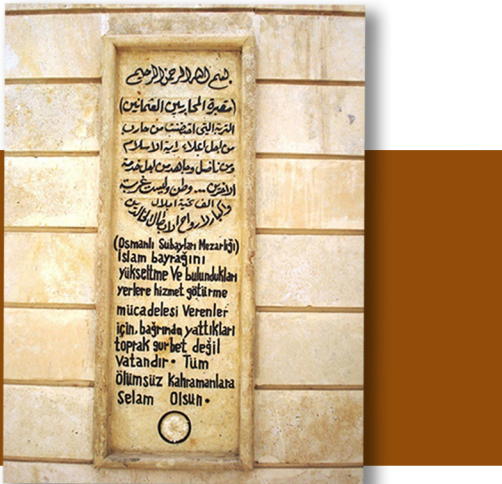 بسم الله الرحمن الرحيم
(مقبرة المحاربين العثمانين)
التربة التي احتضنت من حارب
من اجل اعلاء راية الاسلام
ومن ناضل وجاهد من اجل خدمة
الاخرين ... وطن وليست غربة
الف تحية اجلال
واكبار لارواح الابطال الخالدين
(Osmanlı Subayları Mezarlığı)
İslam bayrağını
yükseltme Ve bulundukları
yerlere hizmet götürme
mücadelesi Verenler
için, bağrında yattıkları
toprak gurbet değil
Vatandır. Tüm
ölümsüz Kahramanlara
Selam Olsun.